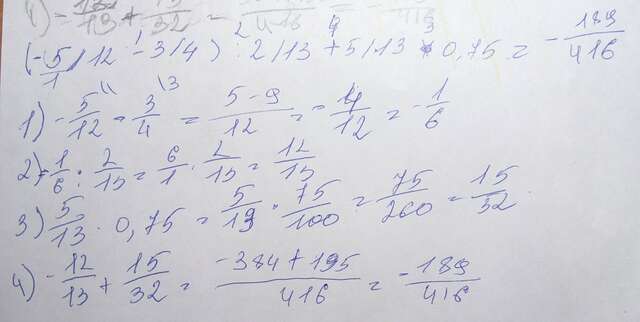 4) -12/13 + 15/32 =
1 2 4 3
(-5/12 - 3/4) : 2/13 + 5/13 · 0,75 = -189/416
1) -5/12 - 3/4 = 5-9/12 = -4/12 = -1/6
2) -1/6 : 2/13 = 6/1 · 2/13 = 12/13
3) 5/13 · 0,75 = 5/13 · 75/100 = 75/260 = 15/32
4) -12/13 + 15/32 = -384+195/416 = -189/416